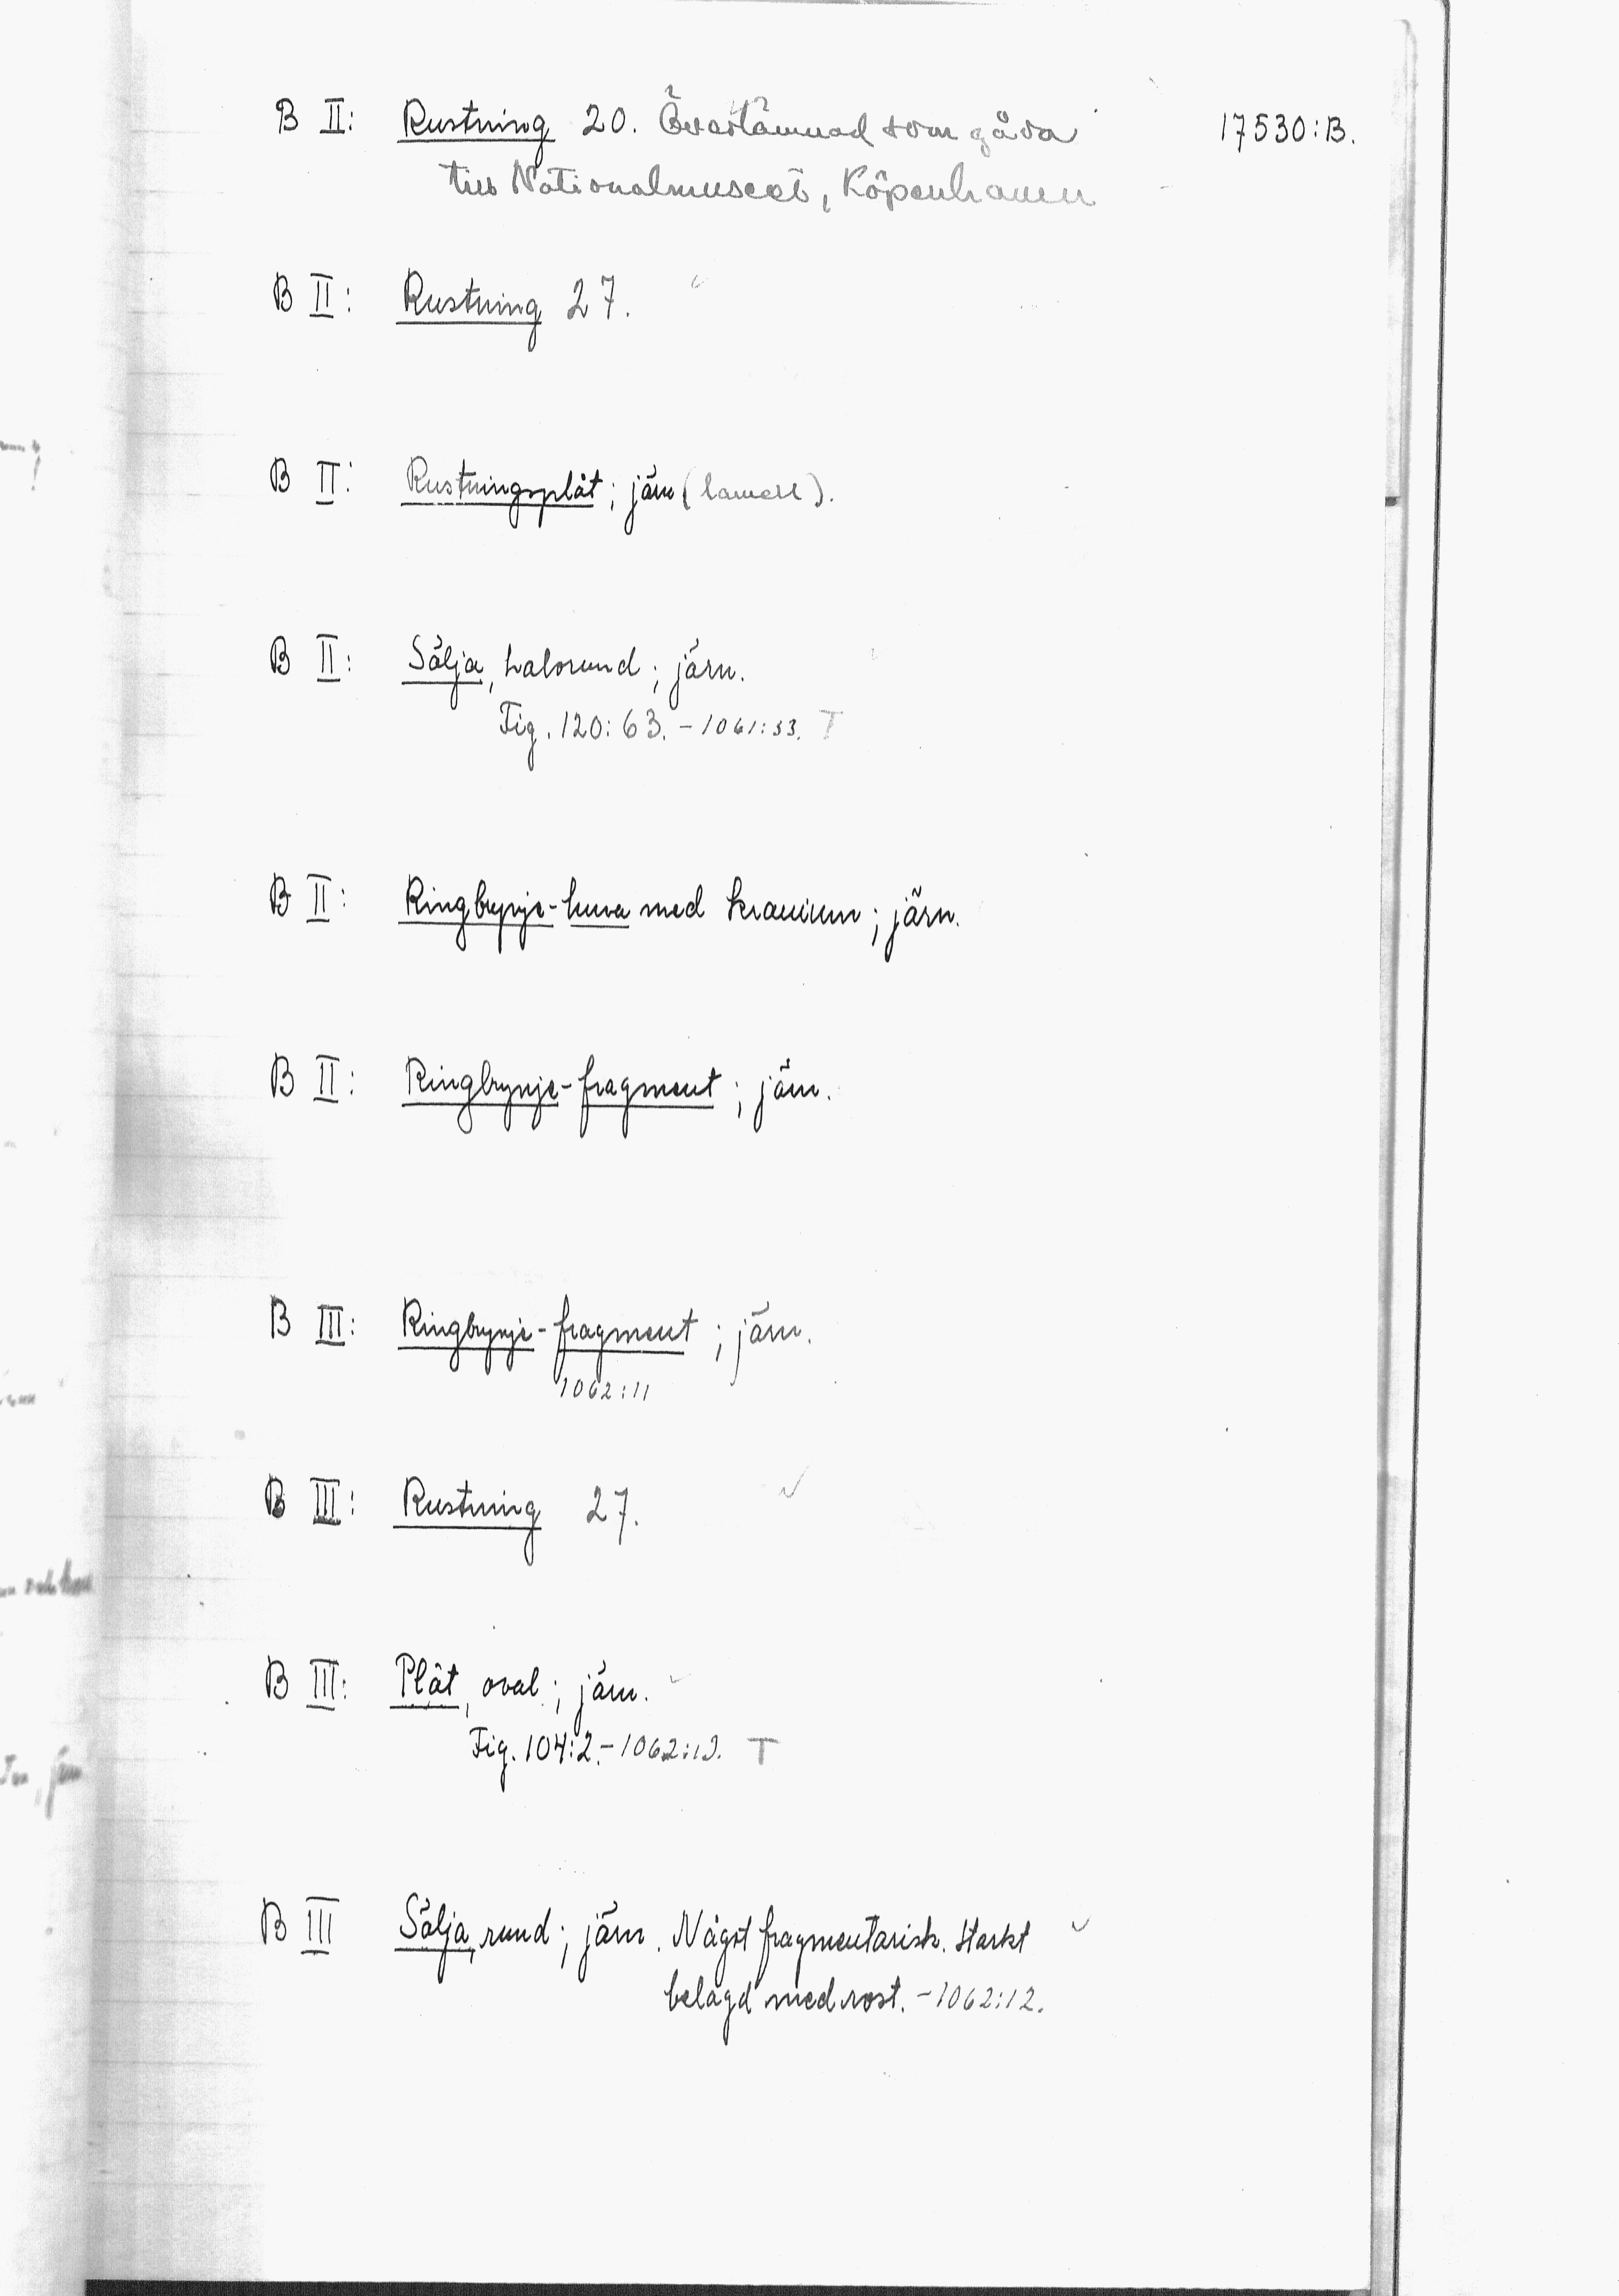 B II: Rustning 20. Överlämnad som gåva 17530:B.
till Nationalmuseet, Köpenhamn
B II: Rustning 27.
B II: Rustningsplåt; järn (lamell).
B II: Sölja, halvrund; järn.
Fig. 120:63. - 1061:33. T
B II: Ringbrynje-huva med kranium; järn.
B II: Ringbrynje-fragment; järn.
B III: Ringbrynje-fragment; järn.
1062:11
B III: Rustning 27.
B III: Plåt, oval; järn.
Fig. 104:2. - 1062:12. T
B III Sölja, rund; järn. Något fragmentarisk. Starkt
belagd med rost. - 1062:12.